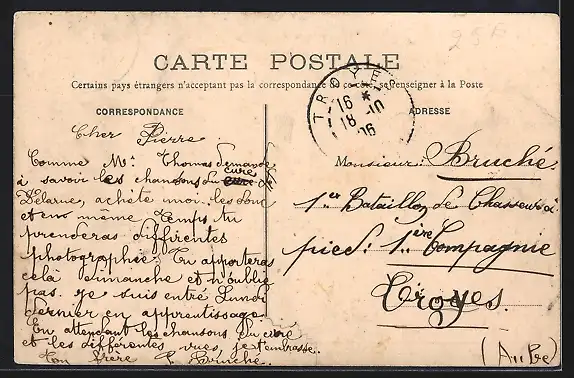 CARTE POSTALE
Certains pays étrangers n'acceptant pas la correspondance de ce côté, se renseigner à la Poste
CORRESPONDANCE
Cher Pierre.
Comme Mr Thomas demande
à savoir les chansons du cure
Delarue, achète moi les donc
et en même temps tu
prenderas diffirentes
photographie. Tu apporteras
celà dimanche et n'oublie
pas. je suis entré Lundi
dernier en apprentissage.
En attendant les chansons du curé
et les différentes vues, je t'embrasse.
Ton frère P. Bruché.
TROYES
16
18 -10
06
ADRESSE
Monsieur: Bruché.
1er Bataillon de Chasseurs à
pied: 1ère Compagnie
Troyes.
(Aube)